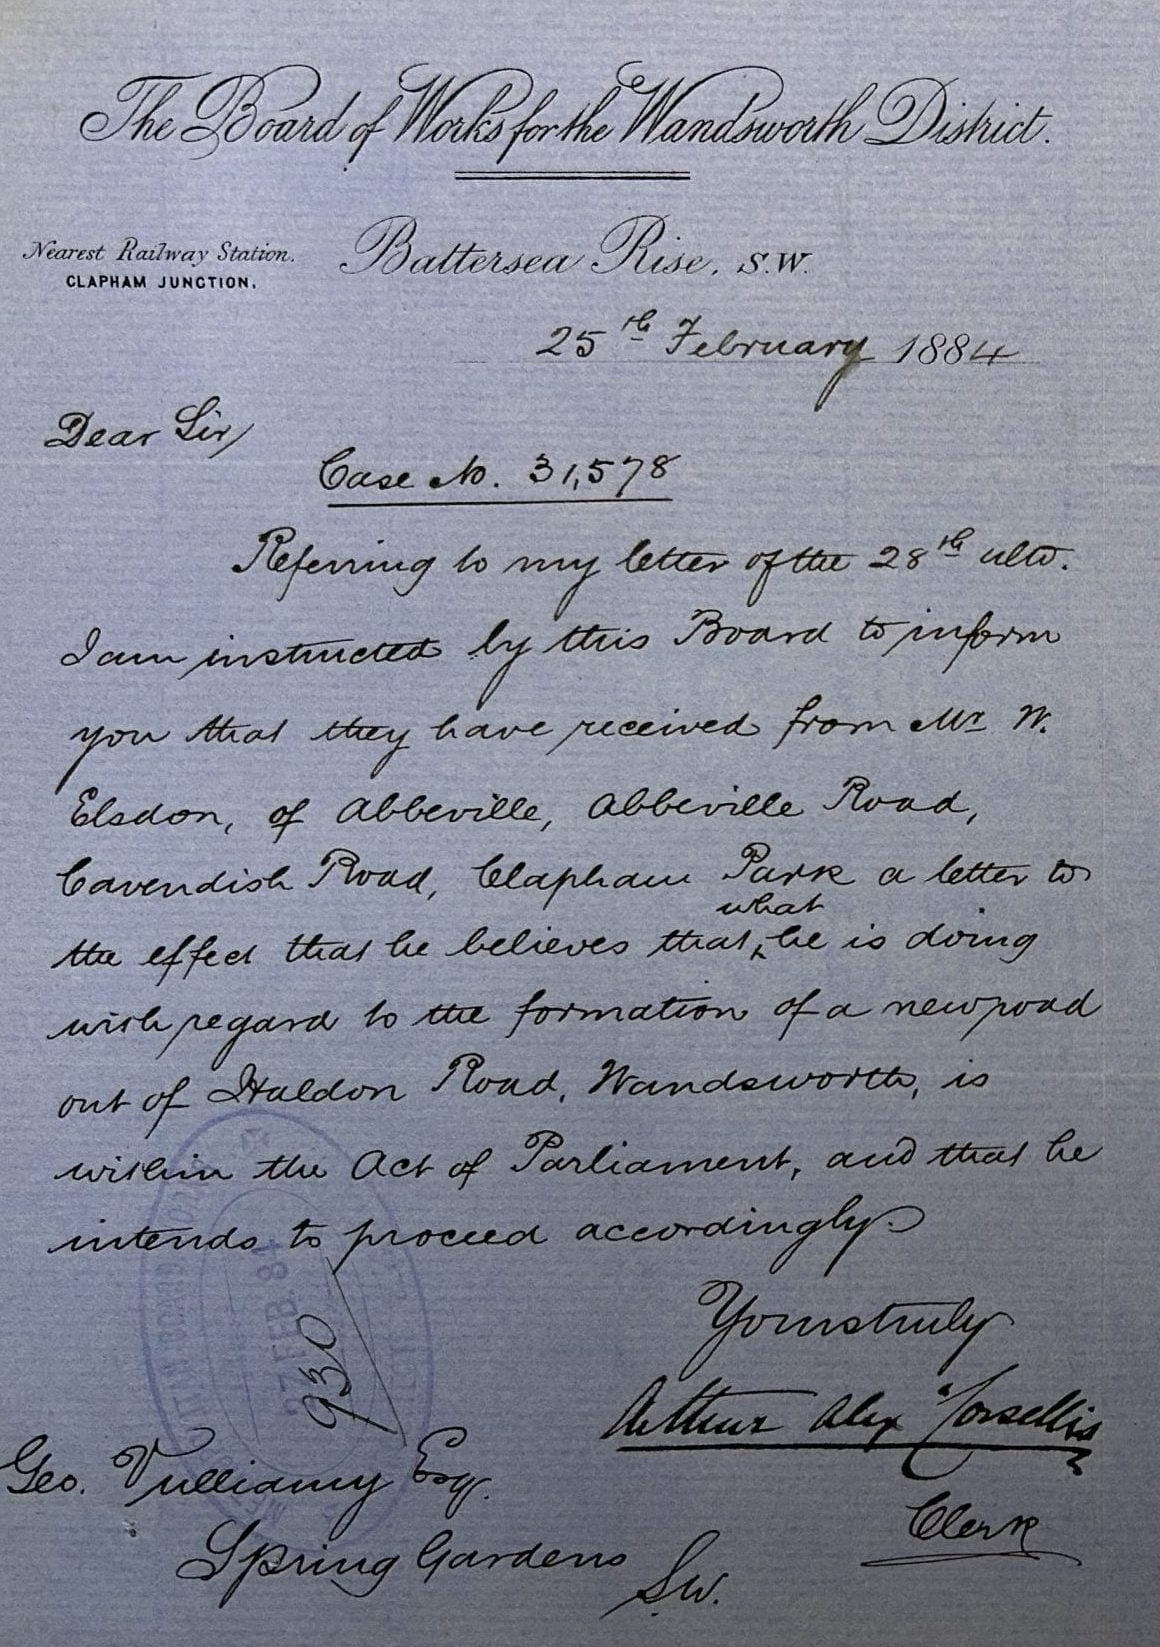 The Board of Works for the Wandsworth District.
Nearest Railway Station.
CLAPHAM JUNCTION.
Battersea Rise, S.W.
25th February 1884
Dear Sir,
Case No. 31,578
Referring to my letter of the 28th ulto.
I am instructed by this Board to inform
you that they have received from Mr W.
Elsdon, of Abbeville, Abbeville Road,
Cavendish Road, Clapham Park a letter to
the effect that he believes that what he is doing
with regard to the formation of a new road
out of Haldon Road, Wandsworth, is
within the Act of Parliament, and that he
intends to proceed accordingly.
Yours truly
Arthur Alex Corsellis
Clerk
930
Geo. Vulliamy Esqr.
Spring Gardens
S.W.